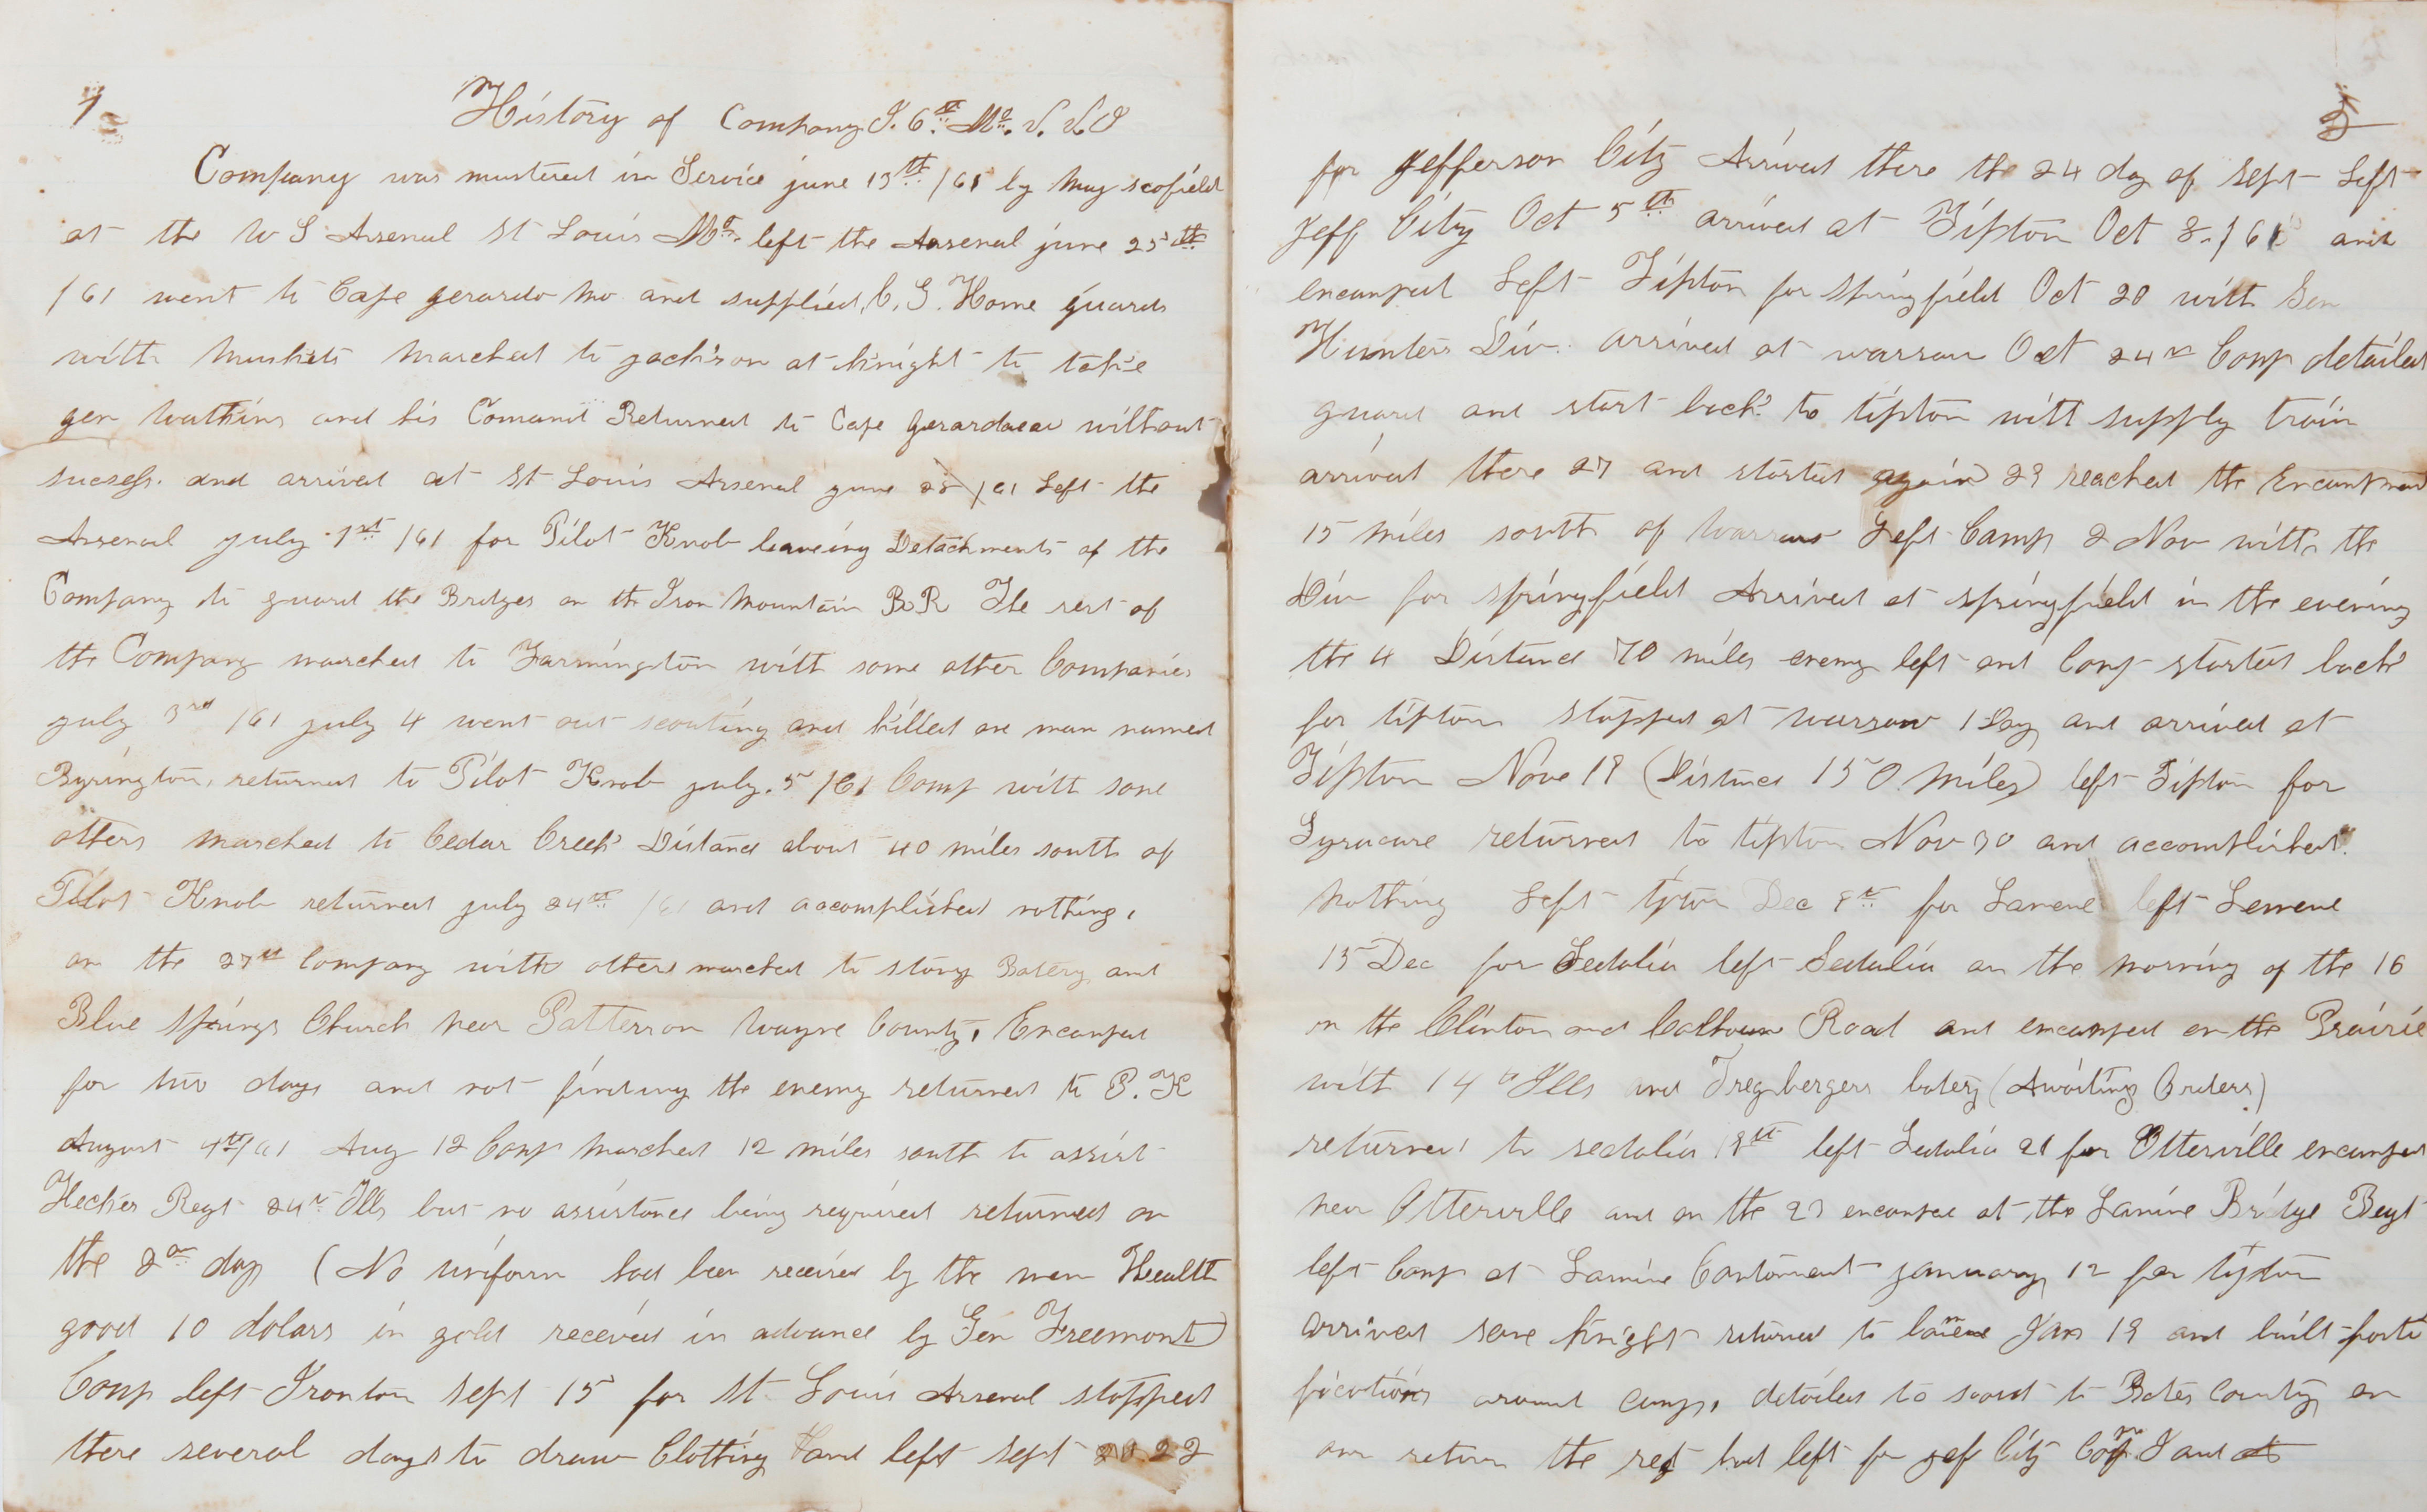 1
History of Company I. 6th Mo. V. V. I
Company was mustered in Service june 13th /61 by may scofield
at the U S Arsenal St Louis Mo. left the Arsenal june 25th
/61 went to Cape gerardo Mo and supplied C. G. Home guards
with Muskets Marched to jackson at knight to take
gen Watkins and his Comand Returned to Cape gerardaeau without
sucsess. and arrived at St Louis Arsenal june 28 /61 Left the
Arsenal july 1st /61 for Pilot Knob leaveing Detachments of the
Company to guard the Bridges on the Iron Mountain RR The rest of
the Company marched to Farmington with some other Companies
july 3rd /61 july 4 went out scouting and killed one man named
Byrington, returned to Pilot Knob july. 5 /61 Comp with some
others marched to Cedar Creek Distance about 40 miles south of
Pilot Knob returned july 24th /61 and accomplished nothing,
on the 27th Company with others marched to stony Batery and
Blue Springs Church near Patterson Wayne County, Encamped
for two days and not finding the enemy returned to P. K
August 4th/61 Aug 12 Comp Marched 12 miles south to assist
Heckers Regt 24th Ills but no assistance being required returned on
the 2nd day (No uniform had been received by the men Health
good 10 dolars in gold received in advance by Gen Freemont)
Comp left Ironton Sept 15 for St Louis Arsenal stopped
there several days to draw Clothing and left Sept 22
2
for Jefferson City Arrived there the 24 day of Sept Left
Jeff City Oct 5th arrived at Tipton Oct 8. /61 and
encamped Left Tipton for Springfield Oct 20 with Gen
Hunters Div. arrived at warsaw Oct 24th Comp detailed
guard and start back to tipton with supply train
arrived there 27 and started again 29 reached the Encampment
15 miles south of Warsaw Left Camp 2 Nov with the
Div for springfield Arrived at springfield in the evening
the 4 Distance 70 miles enemy left and Comp started back
for tipton stopped at warsaw 1 Day and arrived at
Tipton Nove 18 (Distance 150 miles) left Tipton for
Syracuse returned to tipton Nov 30 and accomplished
Nothing Left tipton Dec 8th for Lamene left Lemene
15 Dec for Sedalia left Sedalia on the morning of the 16
on the Clinton and Calhoun Road and encamped on the Prairie
with 14th Ills and batery (Awaiting Orders)
returned to sedalia 18th left Sedalia 21 for Otterville encamped
near Otterville and on the 23 encamped at the Lamine Bridge Regt
left Camp at Lamine Cantonment january 12 for tipton
arrived same knight returned to Jan 19 and built forti
fications around camp, detailed to scout to Bates County on
our return the regt had left for jeff City Comp I and at